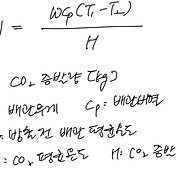 = WCp(T1-T2)
H
CO2 증발량 [kg]
배관무게 Cp = 배관비열
: 방출전 배관 평균온도
: CO2 평균온도 H: CO2 증발